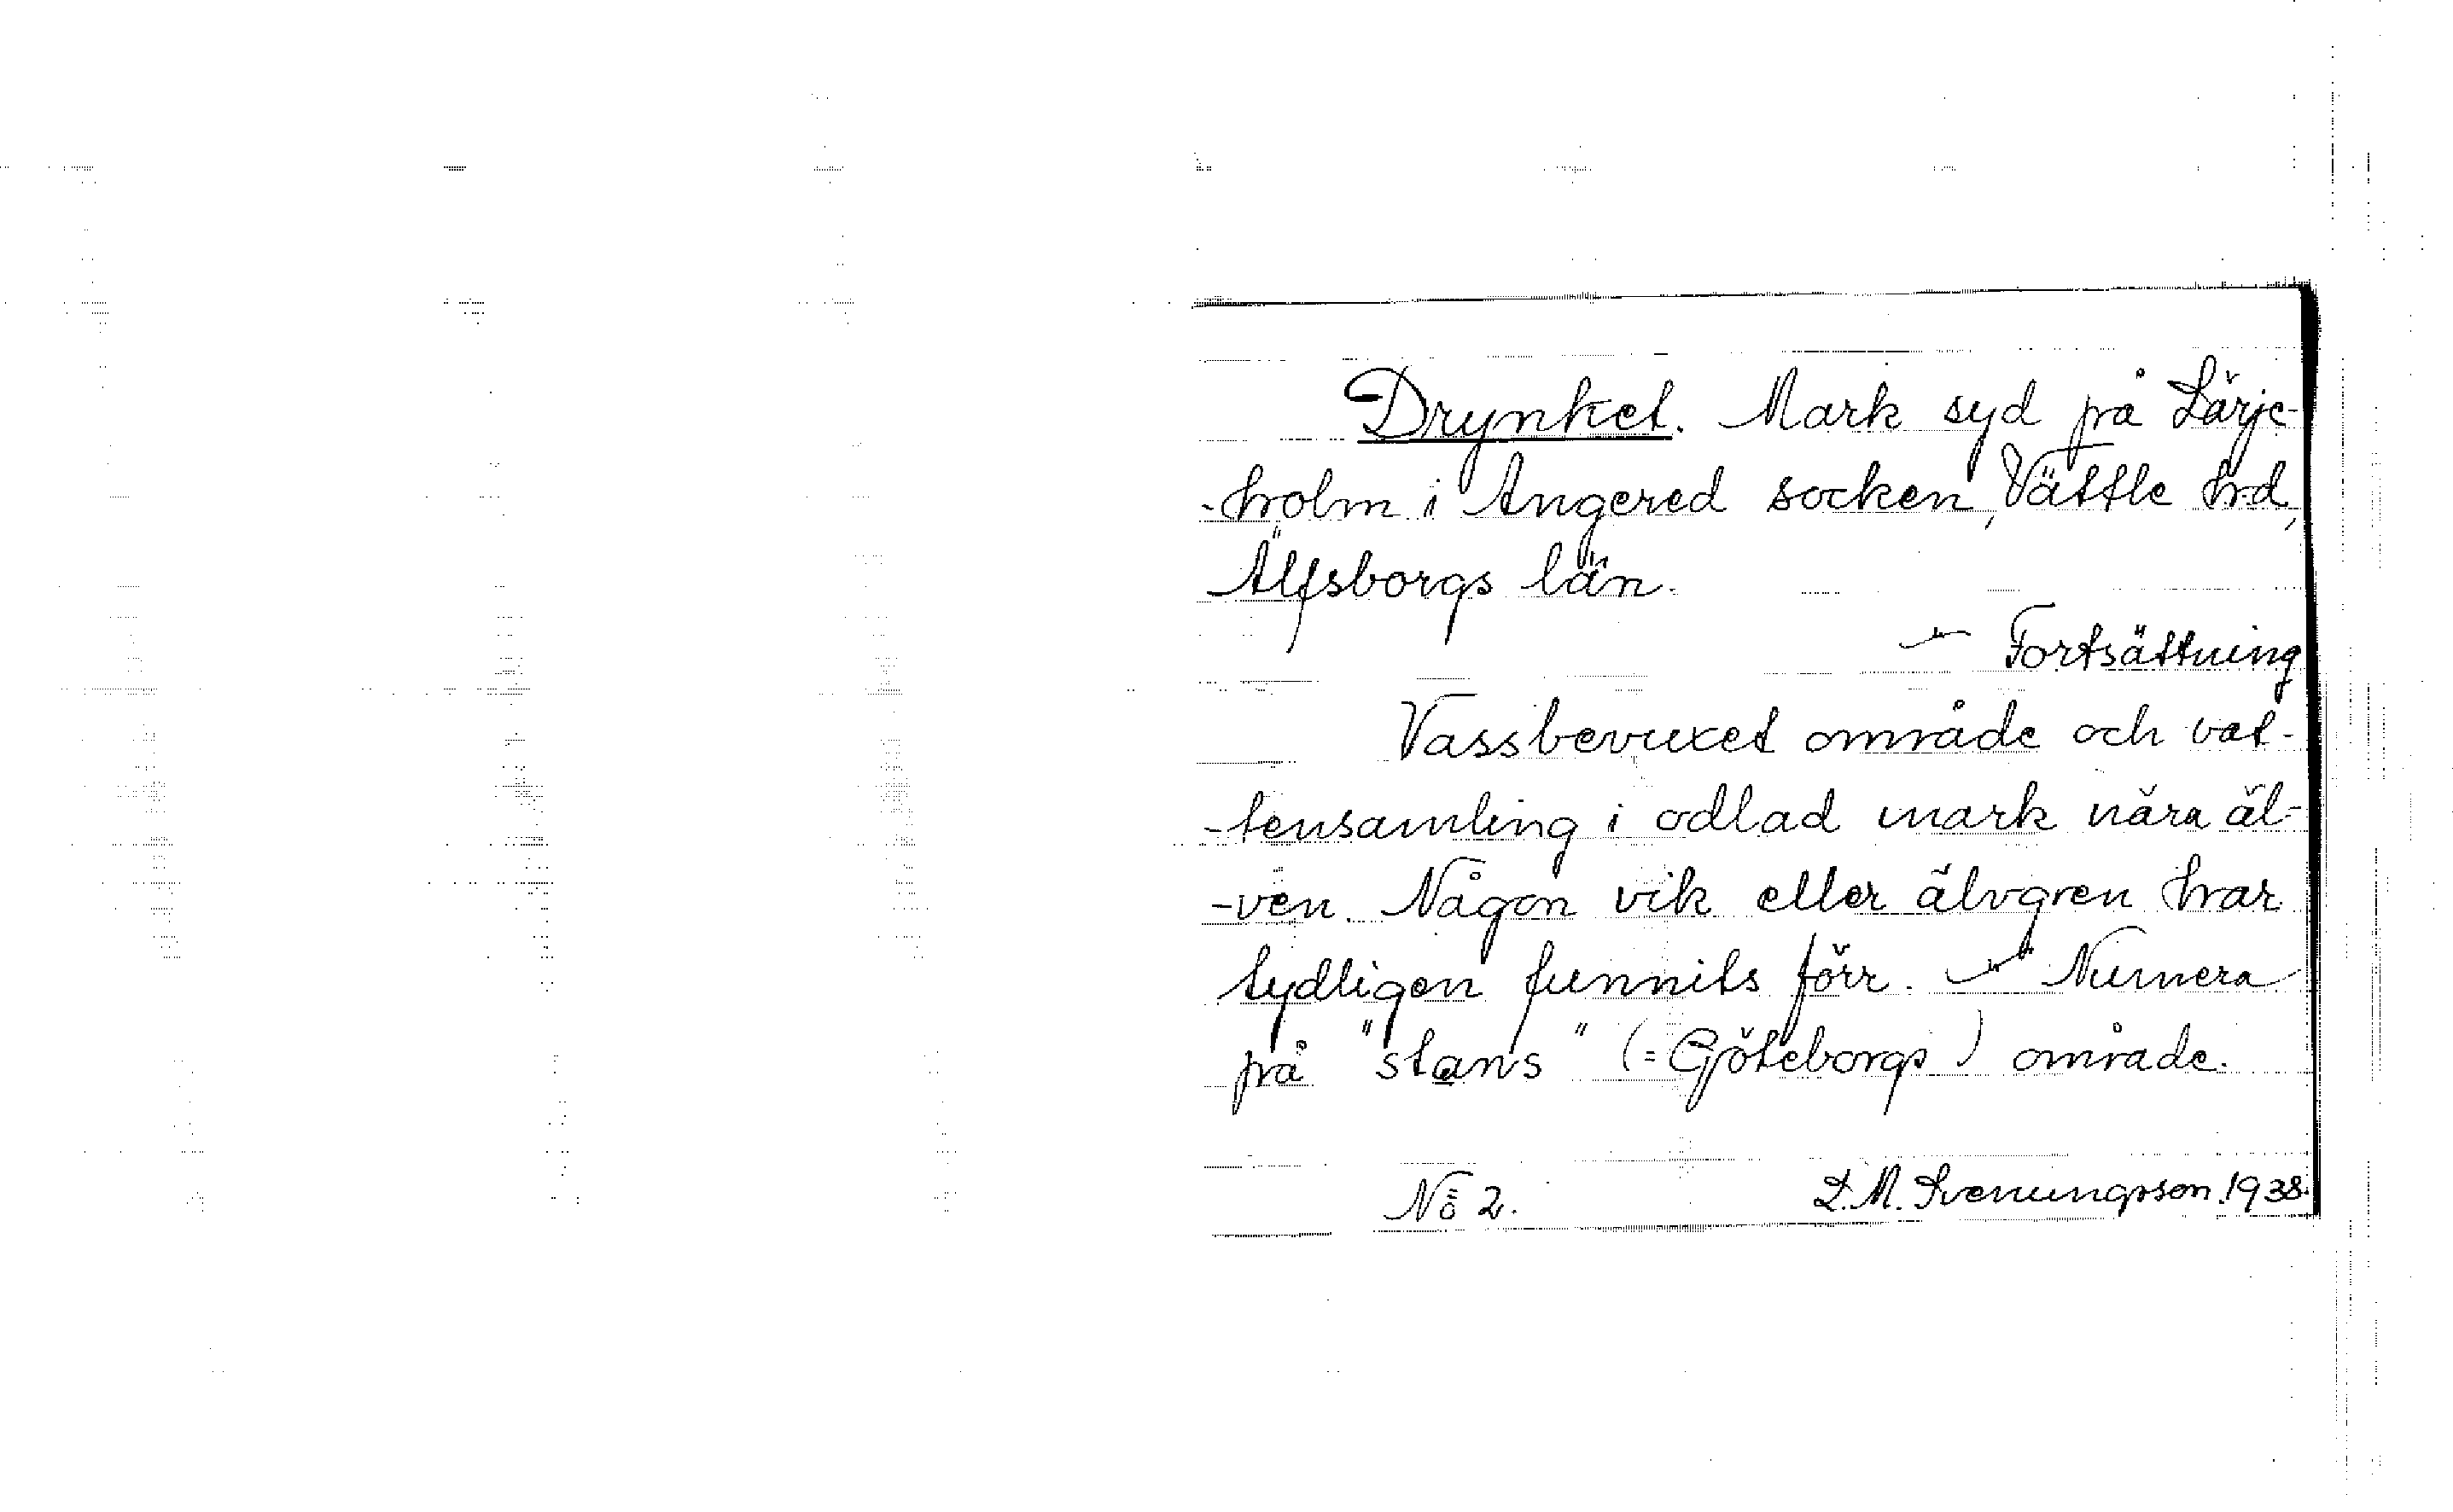 Drynket. Mark syd på Lärje-
-holm i Angered socken, Vättle hd,
Älfsborgs län.
~ Fortsättning
Vassbevuxet område och vat-
-tensamling i odlad mark nära äl-
-ven. Någon vik eller älvgren har
tydligen funnits förr. ~ Numera
på "stans" (= Göteborgs) område.
No 2. D. M. Svenungsson. 1938.